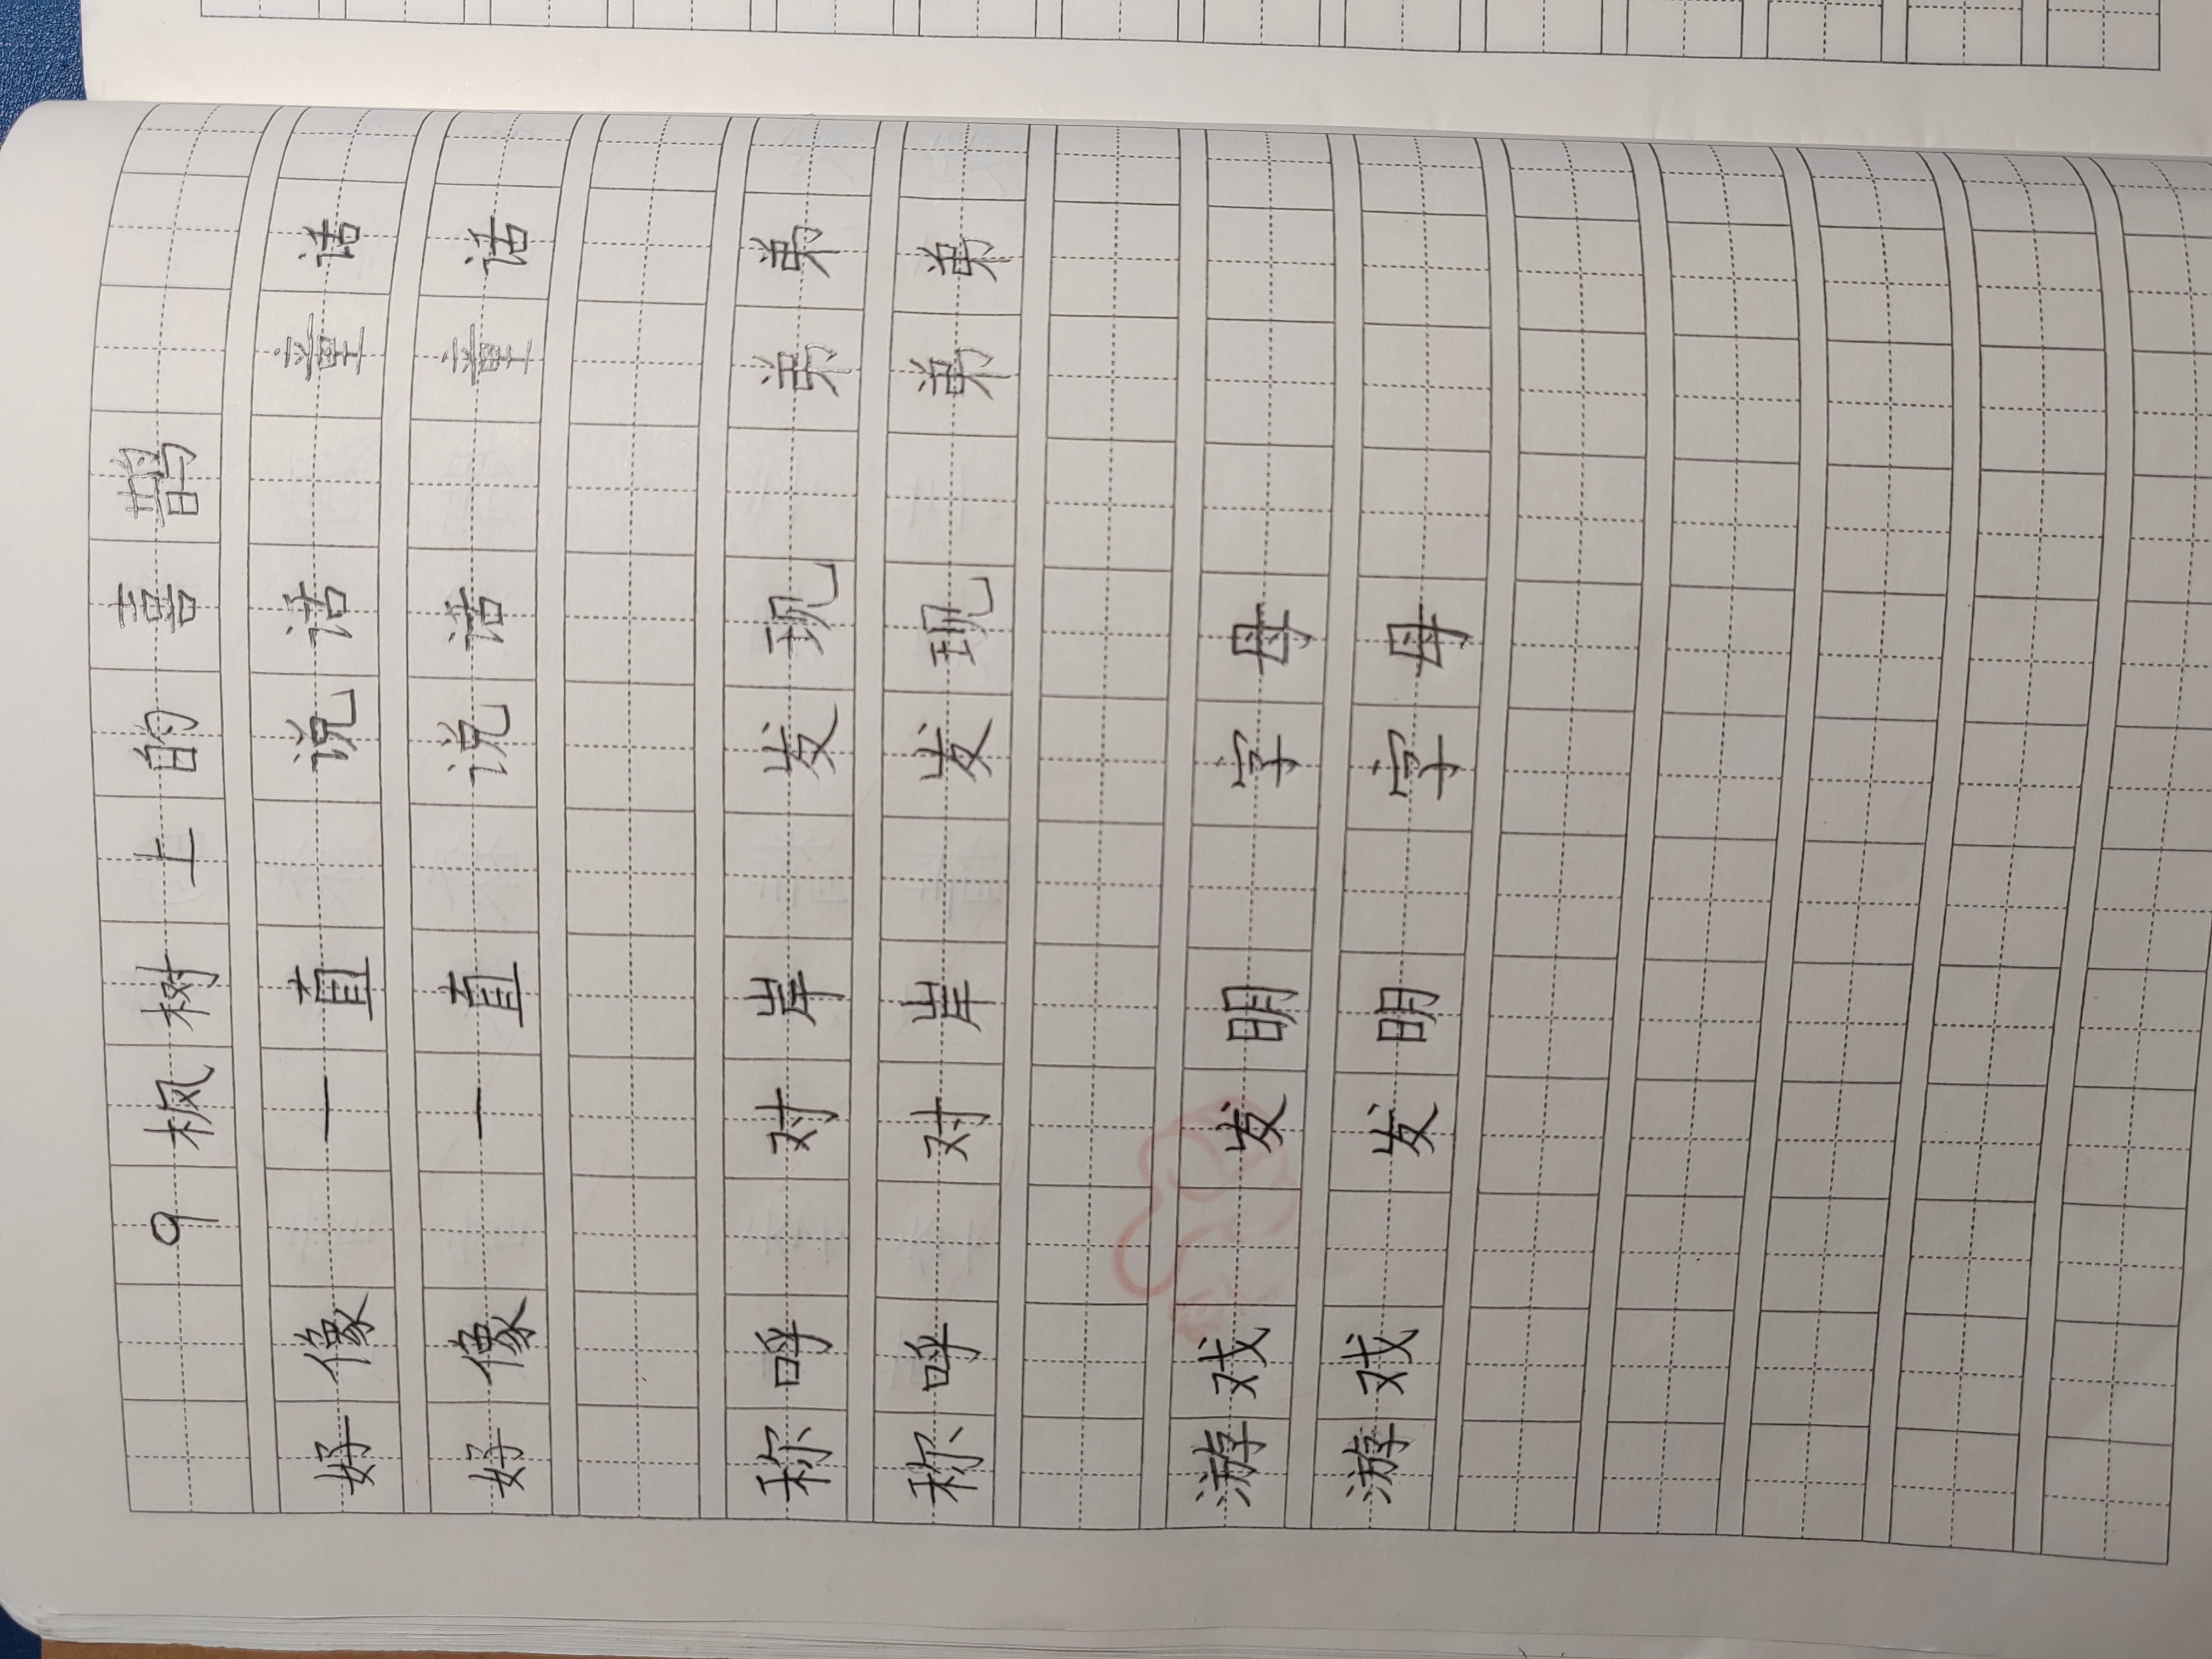 9 枫树上的喜鹊
好像 一直 说话 童话
好像 一直 说话 童话
称呼 对岸 发现 弟弟
称呼 对岸 发现 弟弟
游戏 发明 字母
游戏 发明 字母